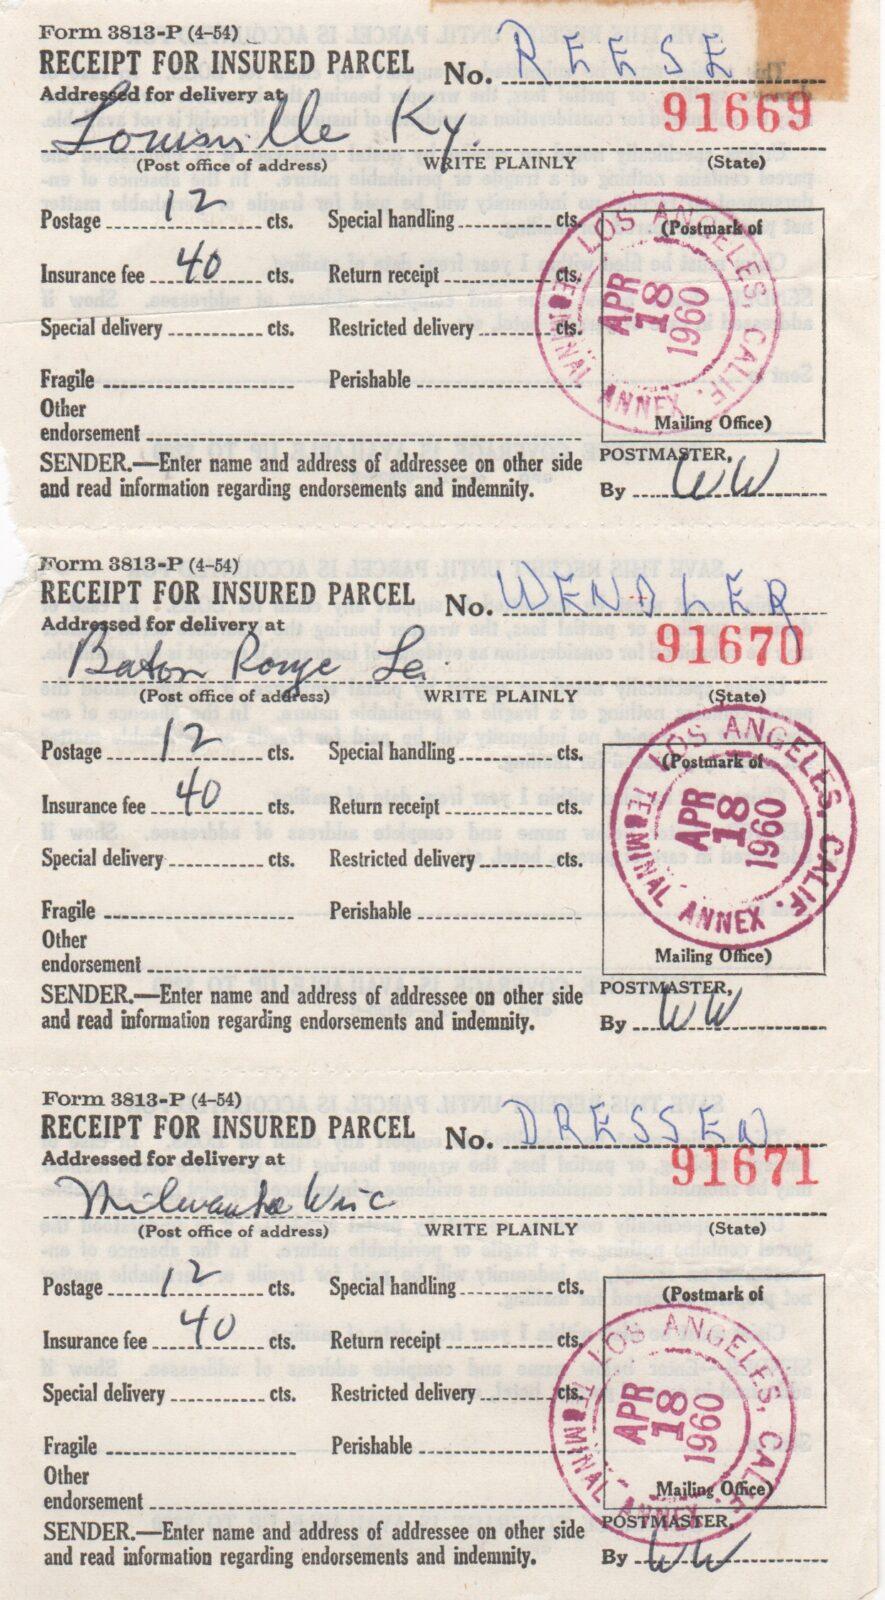 Form 3813-P (4-54)
RECEIPT FOR INSURED PARCEL No. REESE
Addressed for delivery at 91669
Louisville Ky.
(Post office of address) WRITE PLAINLY (State)
Postage 12 cts. Special handling cts. (Postmark of
Insurance fee 40 cts. Return receipt cts.
Special delivery cts. Restricted delivery cts.
LOS ANGELES, CALIF.
APR 18 1960
TERMINAL ANNEX
Fragile Perishable
Other
endorsement Mailing Office)
SENDER.—Enter name and address of addressee on other side POSTMASTER,
and read information regarding endorsements and indemnity. By WW
Form 3813-P (4-54)
RECEIPT FOR INSURED PARCEL No. WENDLER
Addressed for delivery at 91670
Baton Rouge La.
(Post office of address) WRITE PLAINLY (State)
Postage 12 cts. Special handling cts. (Postmark of
Insurance fee 40 cts. Return receipt cts.
Special delivery cts. Restricted delivery cts.
LOS ANGELES, CALIF.
APR 18 1960
TERMINAL ANNEX
Fragile Perishable
Other
endorsement Mailing Office)
SENDER.—Enter name and address of addressee on other side POSTMASTER,
and read information regarding endorsements and indemnity. By WW
Form 3813-P (4-54)
RECEIPT FOR INSURED PARCEL No. DRESSEN
Addressed for delivery at 91671
Milwaukee Wisc
(Post office of address) WRITE PLAINLY (State)
Postage 12 cts. Special handling cts. (Postmark of
Insurance fee 40 cts. Return receipt cts.
Special delivery cts. Restricted delivery cts.
LOS ANGELES, CALIF.
APR 18 1960
TERMINAL ANNEX
Fragile Perishable
Other
endorsement Mailing Office)
SENDER.—Enter name and address of addressee on other side POSTMASTER,
and read information regarding endorsements and indemnity. By WW